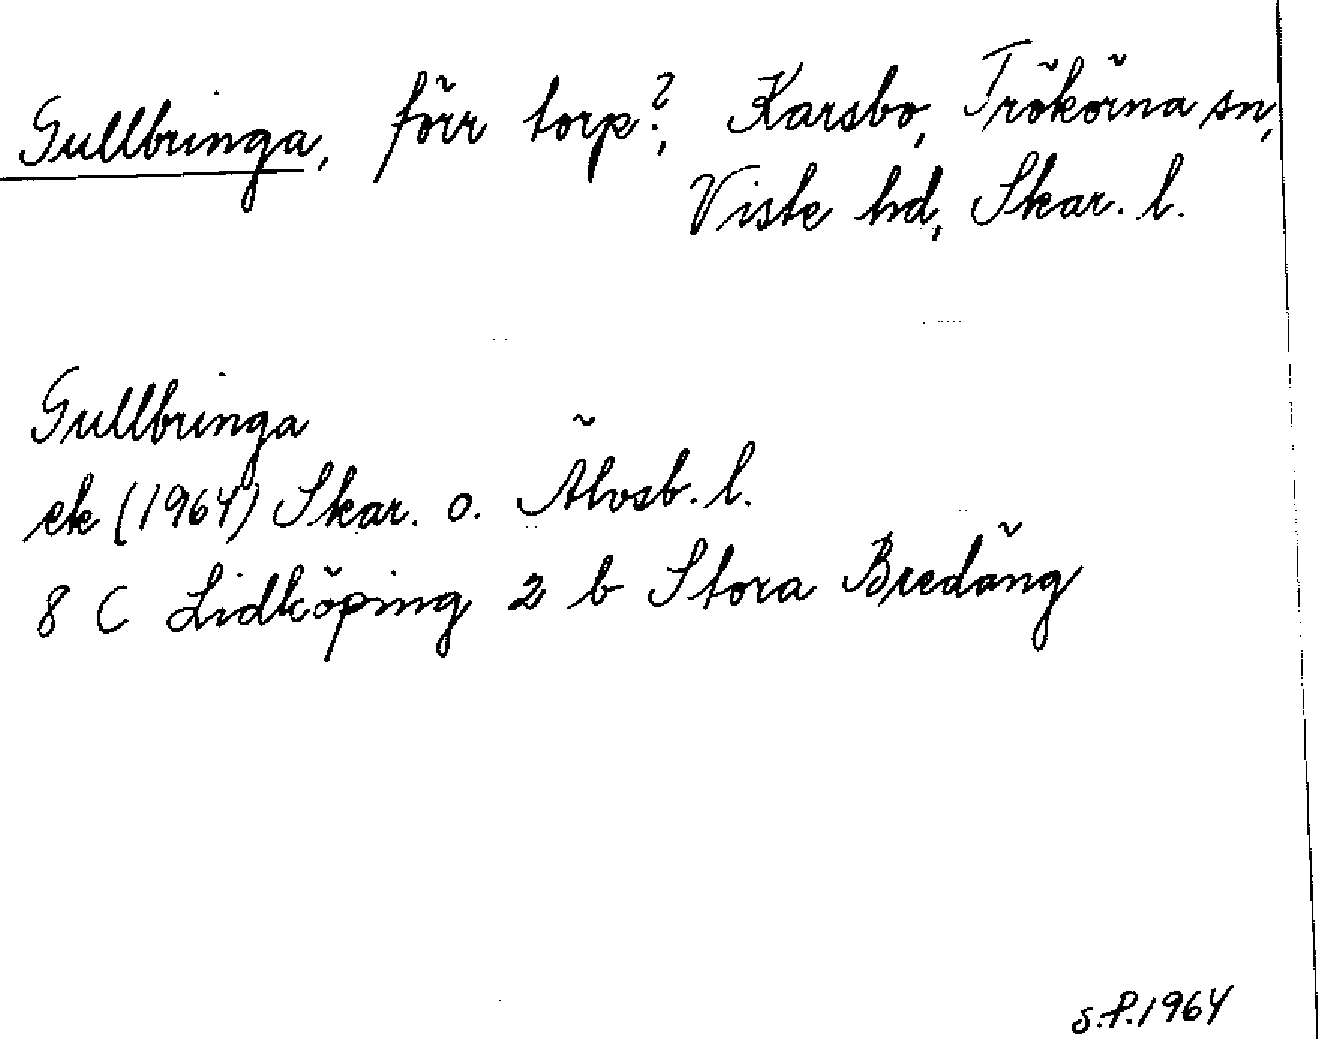 Gullbringa, förr torp?, Karsbo, Trökörna sn,
Viste hd, Skar. l.
Gullbringa
ek (1964) Skar. o. Älvsb. l.
8 C Lidköping 2 b Stora Bredäng
S.P. 1964